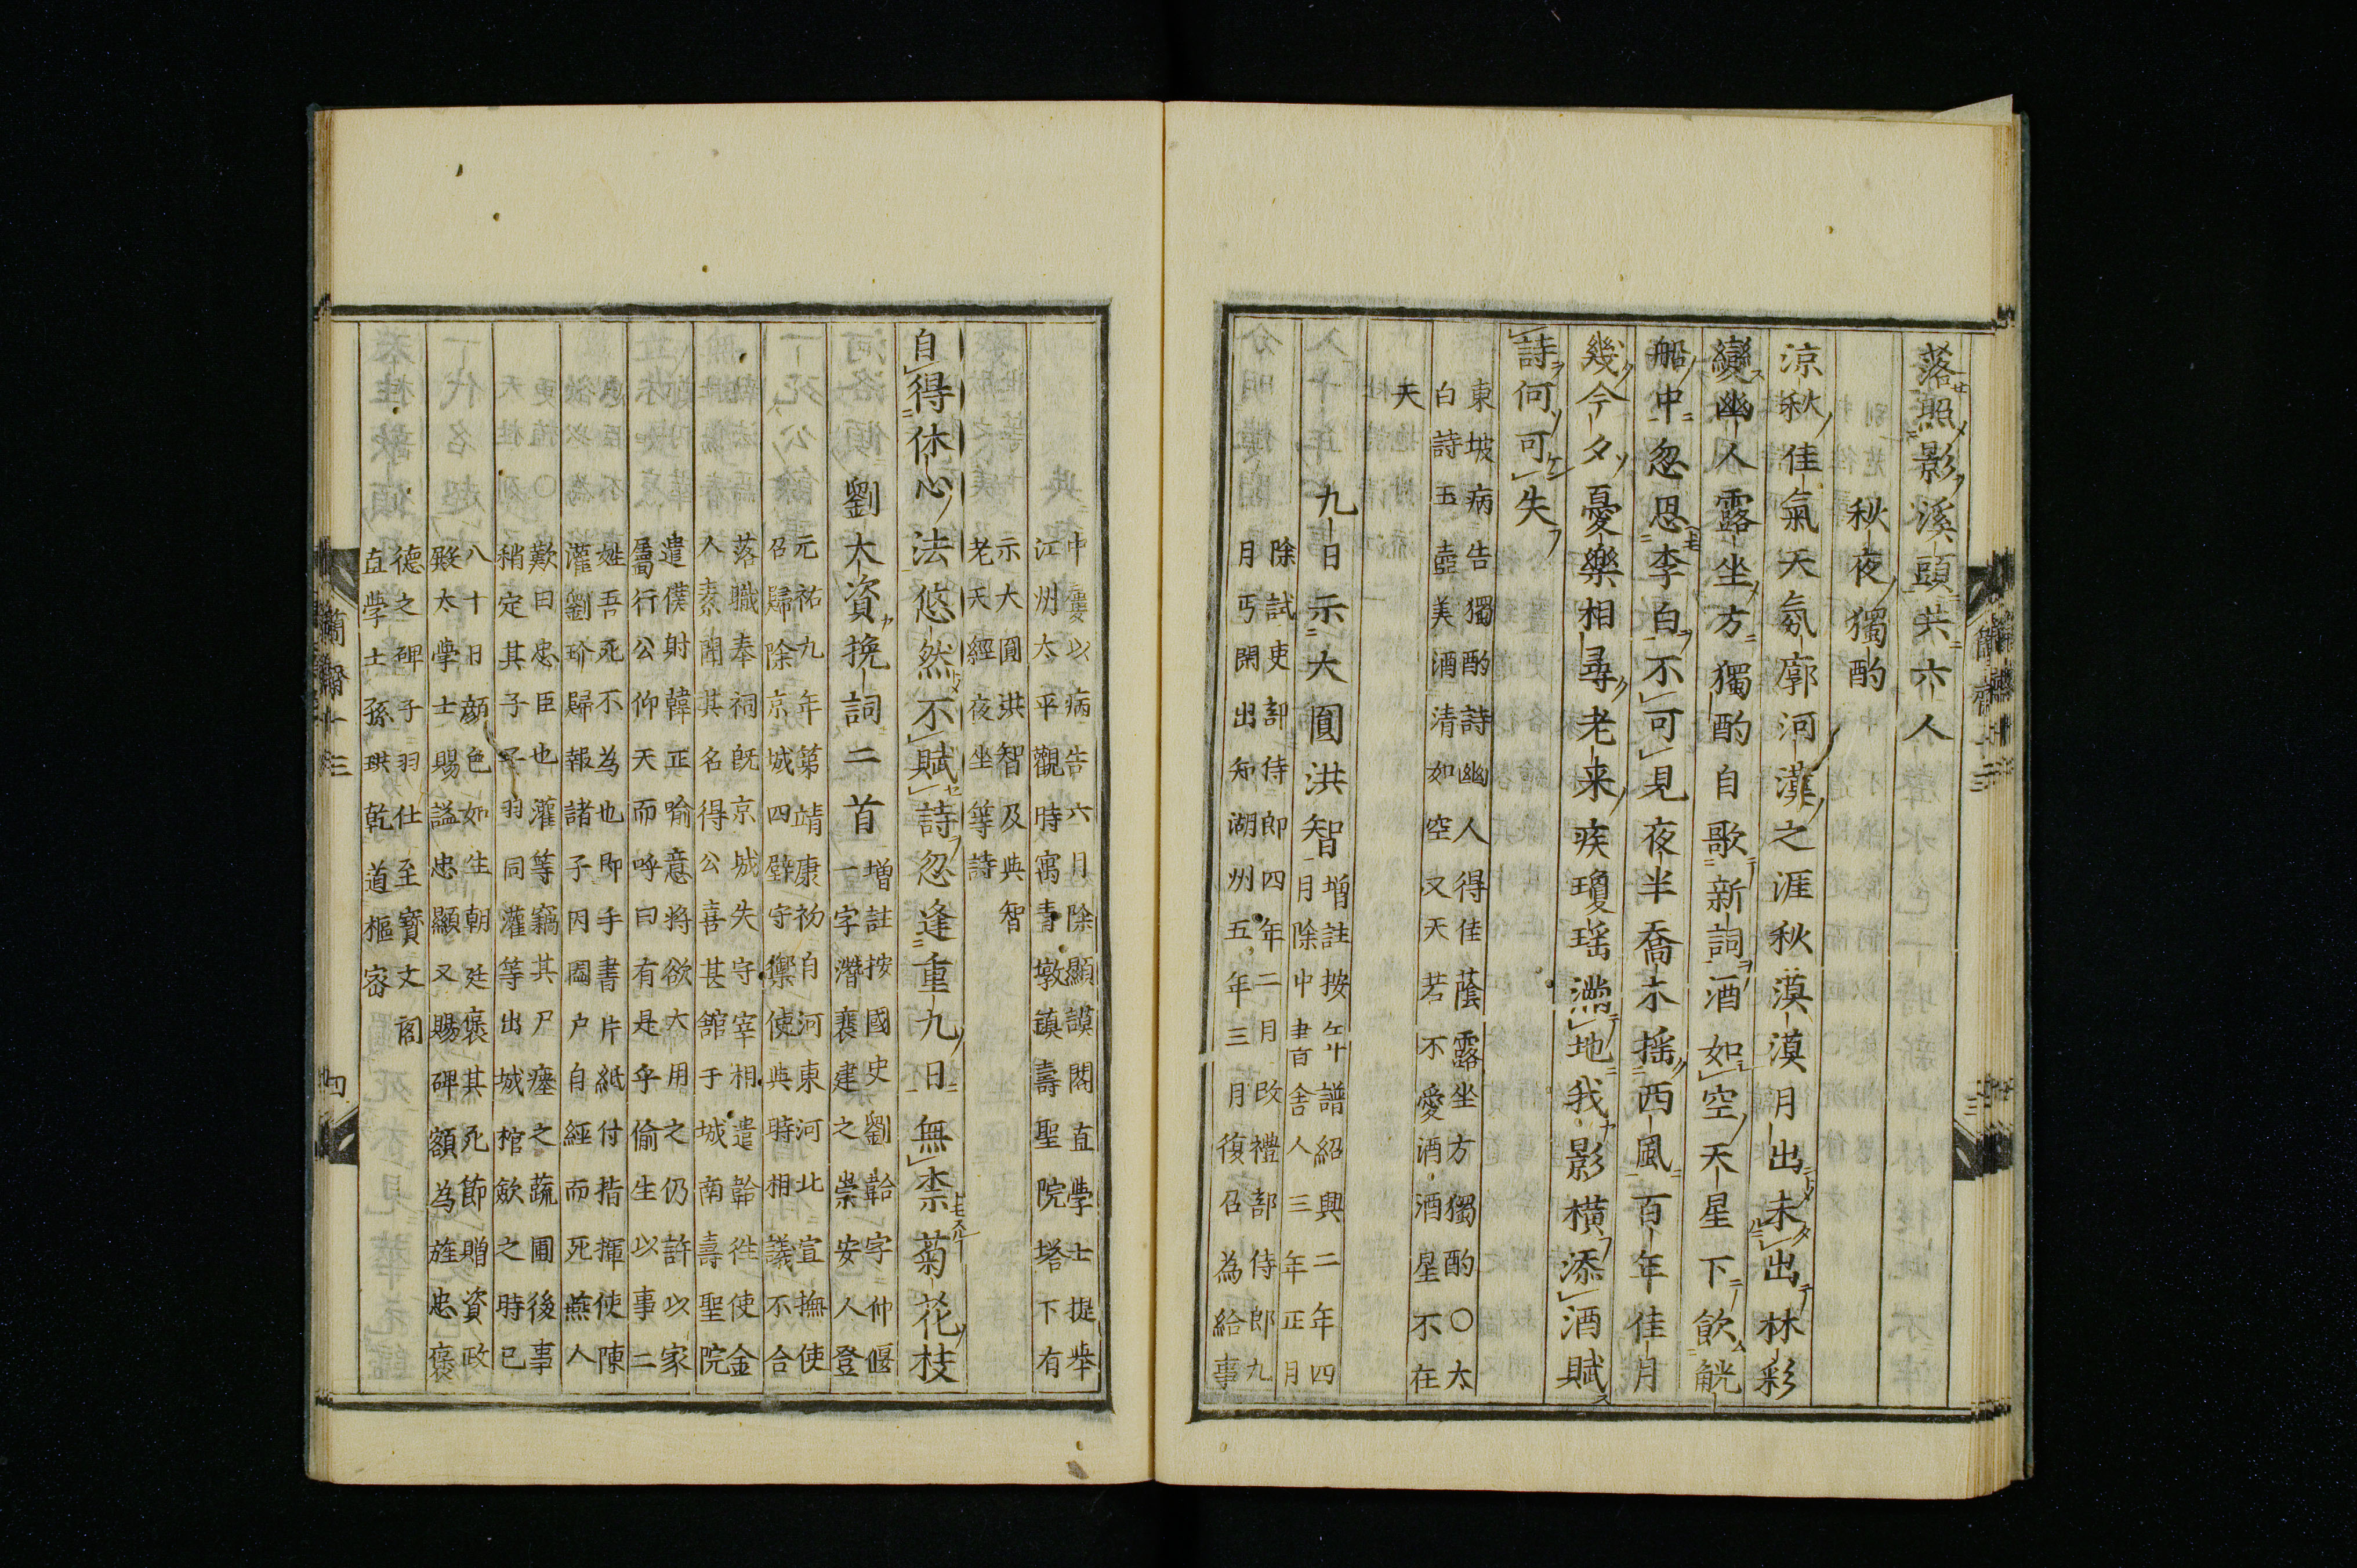 落照影溪頭共六人
秋夜獨酌
涼秋佳氣天氛廓河漢之涯秋漠漠月出未出林彩
變幽人露坐方獨酌自歌新詞酒如空天星下飲觥
船中忽思李白不可見夜半喬木搖西風百年佳月
幾今夕憂樂相尋老来疾瓊瑶滿地我影横添酒賦
詩何可失
東坡病告獨酌詩幽人得佳蔭露坐方獨酌〇太
白詩玉壺美酒清如空又天若不愛酒酒星不在
天
九日示大圓洪智
増註按年譜紹興二年四
月除中書舎人三年正月
除試吏部侍郎四年二月改禮部侍郎九
月丐閑出知湖州五年三月復召為給事
中屢以病告六月除顯謨閣直學士提舉
江州太平觀時寓青墩鎮壽聖院塔下有
示大圓洪智及與智
老天經夜坐等詩
自得休心法悠然不賦詩忽逢重九日無柰菊花枝
劉大資挽詞二首
増註按國史劉韐字仲偃
一字潛襄建之崇安人登
元祐九年第靖康初自河東河北宣撫使
召歸除京城四壁守禦使與時相議不合
落職奉祠既京城失守宰相遣韐徃使金
人素聞其名得公喜甚舘于城南壽聖院
遣僕射韓正喻意將欲大用之仍許以家
屬行公仰天而呼曰有是乎偷生以事二
姓吾死不為也即手書片紙付指揮使陳
灌劉玠歸報諸子因闔户自經而死燕人
歎曰忠臣也灌等竊其尸瘞之蔬圃後事
稍定其子子羽同灌等出城棺歛之時已
八十日顔色如生朝廷褒其死節贈資政
殿大學士賜謚忠顯又賜碑額為旌忠褒
德之碑子羽仕至寳文閣
直學士孫珙乾道樞密
簡齋十三
四